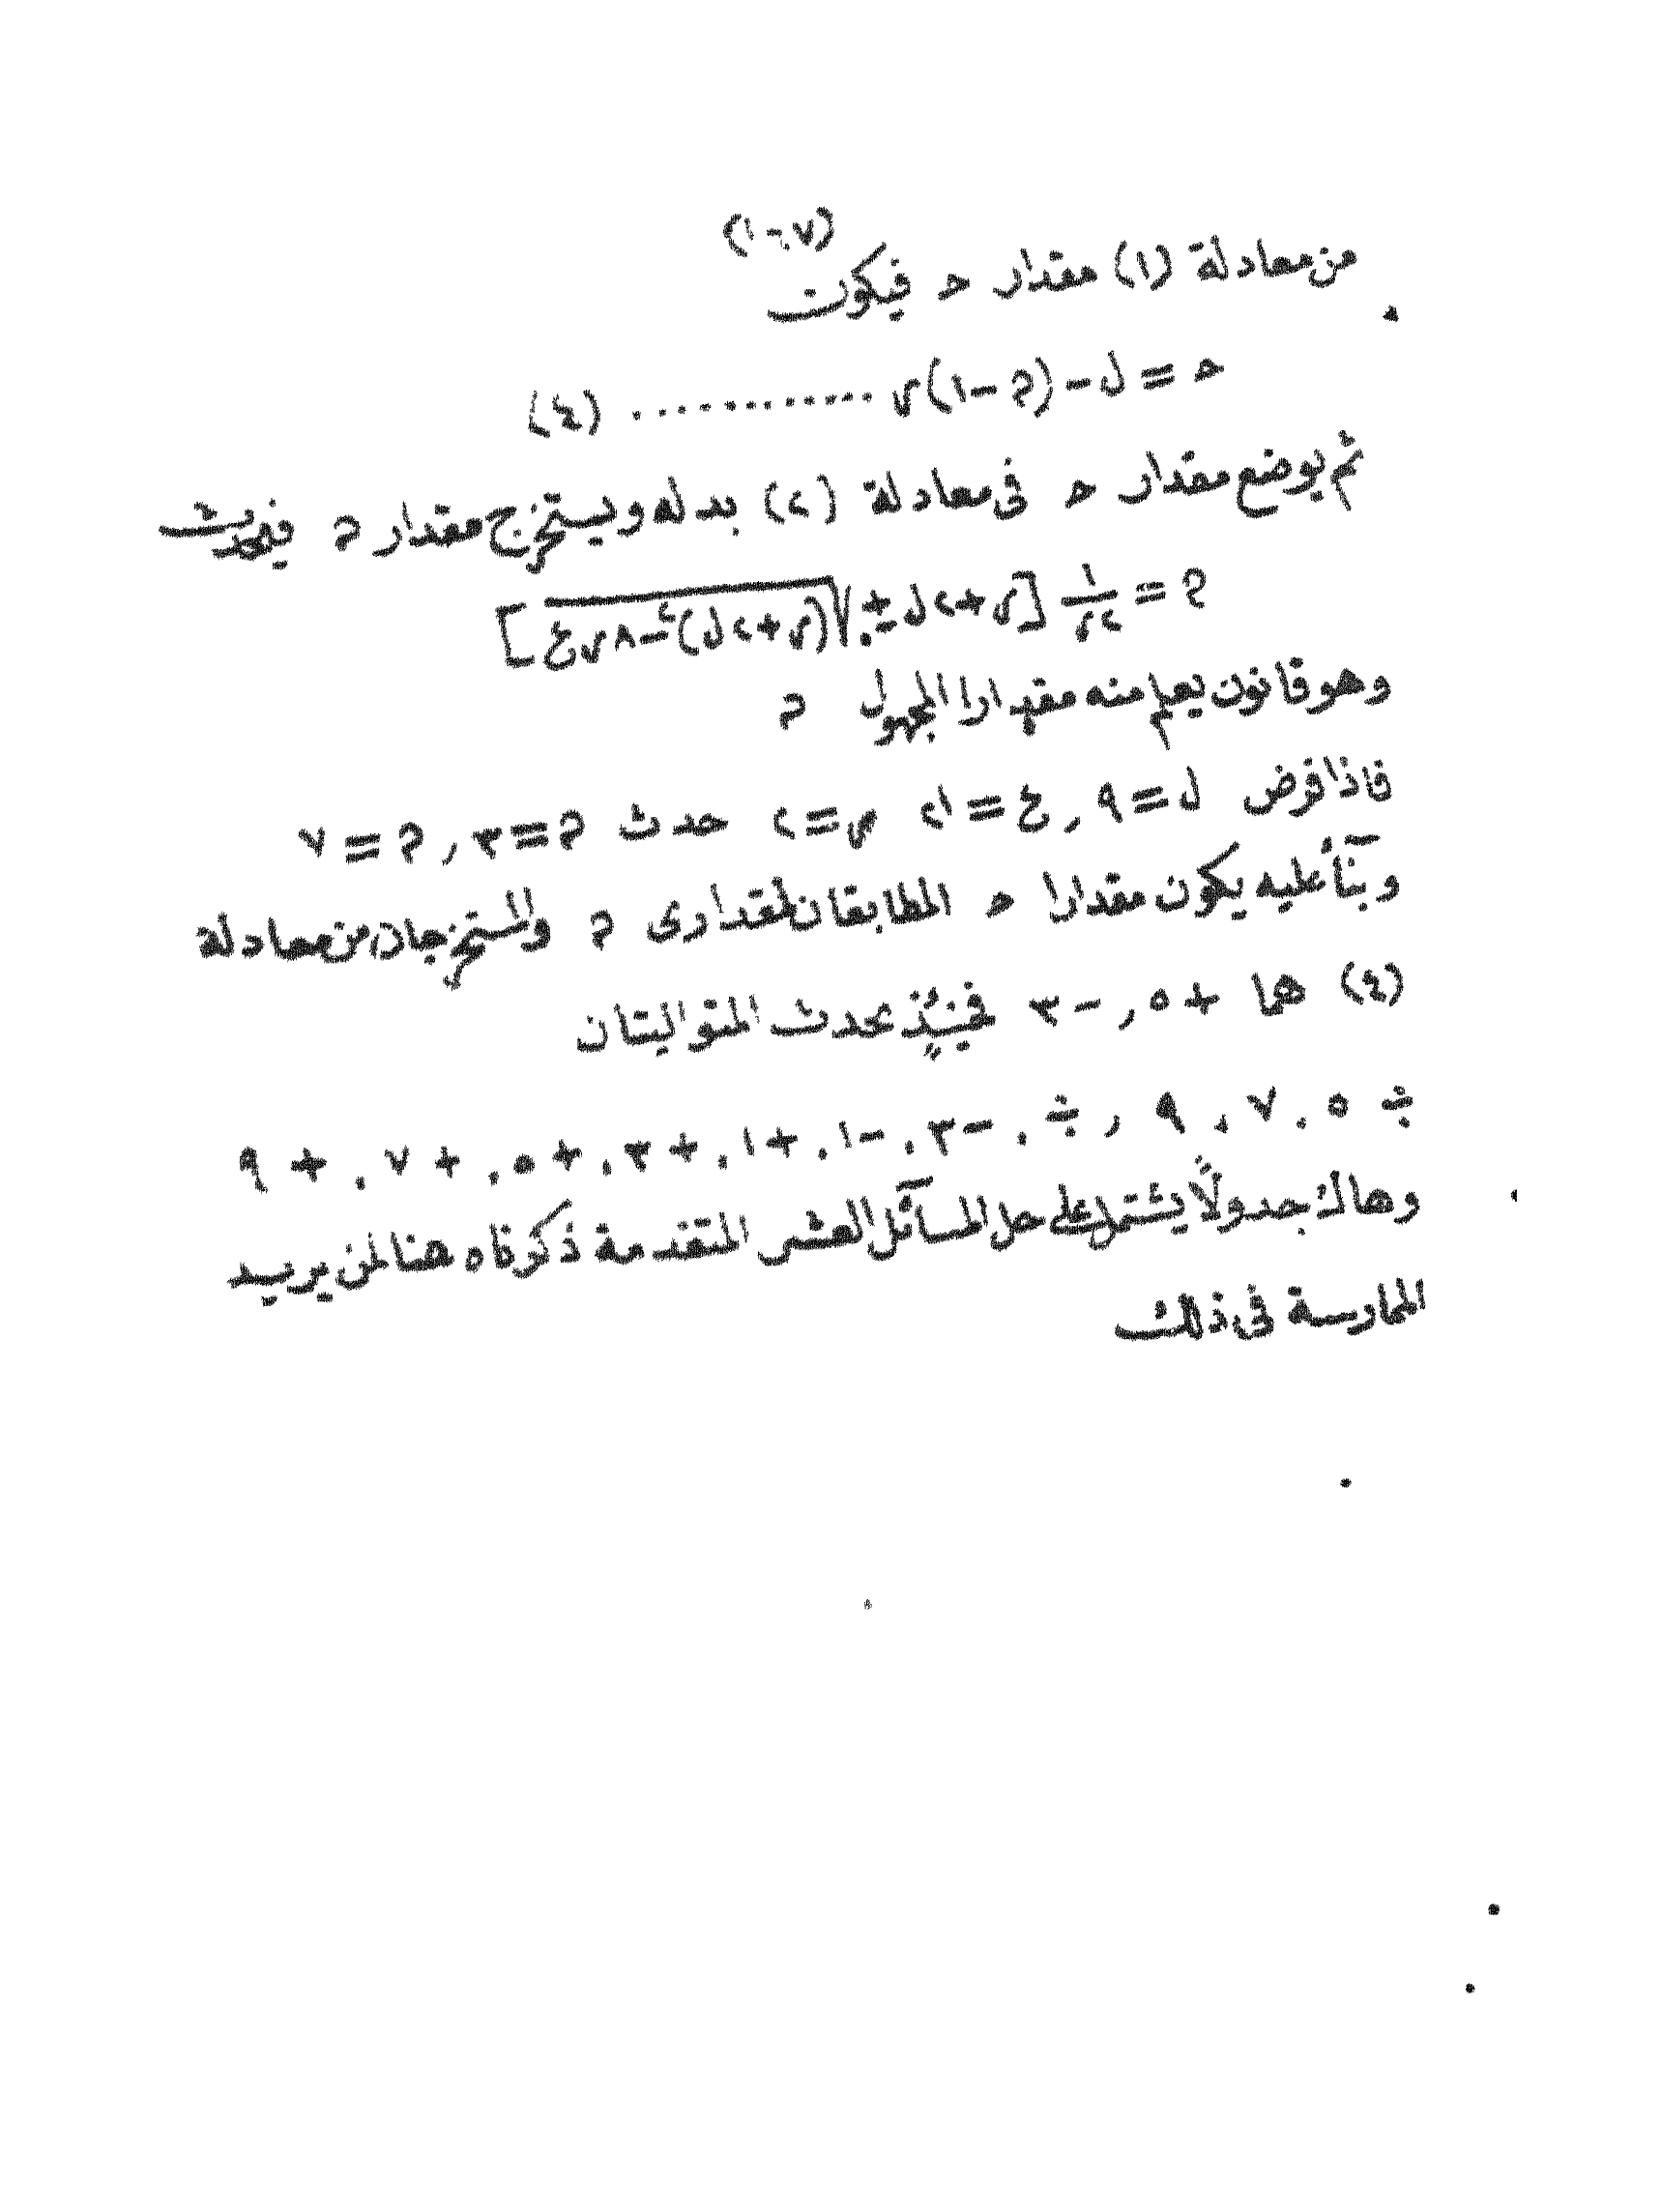 (١٠٧)
من معادلة (١) مقدار حـ فيكون
حـ = ل - (م - ١) س ............ (٤)
ثم يوضع مقدار حـ فى معادلة (٢) بدله ويستخرج مقدار م فيحدث
م = ١/٢س [س + ٢ل ± √(س + ٢ل)٢ - ٨س ع]
وهو قانون يعلم منه مقدارا المجهول م
فاذا فرض ل = ٩ , ع = ٢١ س = ٢ حدث م = ٣ , م = ٧
وبنآء عليه يكون مقدارا حـ المطابقان لمقدارى م والمستخرجان من معادلة
(٤) هما + ٥ , - ٣ فحينئذ يحدث المتواليتان
÷ ٥ . ٧ . ٩ , ÷ . - ٣ . - ١ . + ١ . + ٣ . + ٥ . + ٧ . + ٩
وهاك جدولاً يشتمل على حل المسآئل العشر المتقدمة ذكرناه هنا لمن يريد
الممارسة فى ذلك